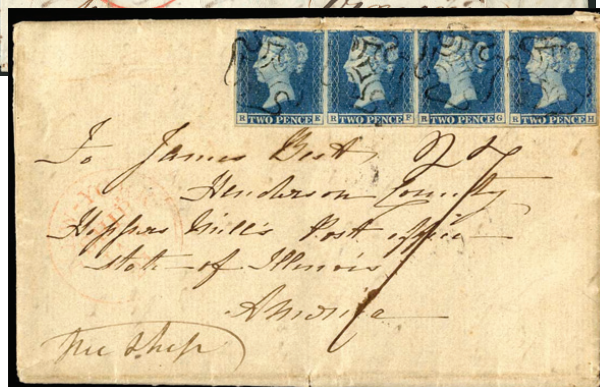 R TWO PENCE E R TWO PENCE F R TWO PENCE G R TWO PENCE H
To James Best 27
Henderson County
Hoppers Mill's Post office
state of Illinois
America
Ship